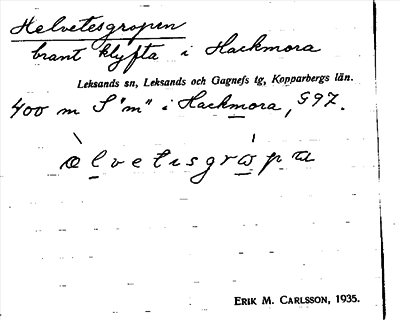 Helvetesgropen
brant klyfta i Hackmora
Leksands sn, Leksands och Gagnefs tg, Kopparbergs län.
400 m S "m" i Hackmora, G97.
ǜlvetısgrɷpα
ERIK M. CARLSSON, 1935.